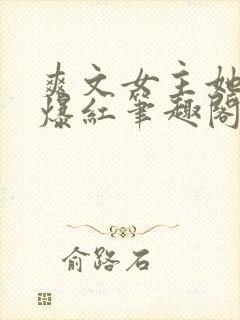 爽文女主她
爆红笔趣阁
俞路石